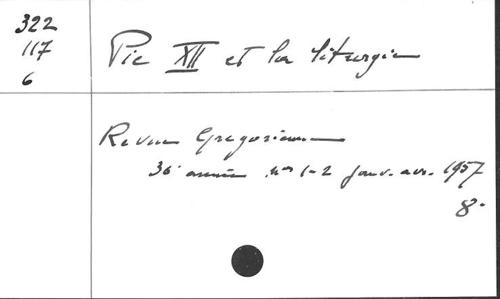 322
117
6
Pie XII et la liturgie
Revue Grégorienne
36 année nos 1-2 janv. avr. 1957
8°